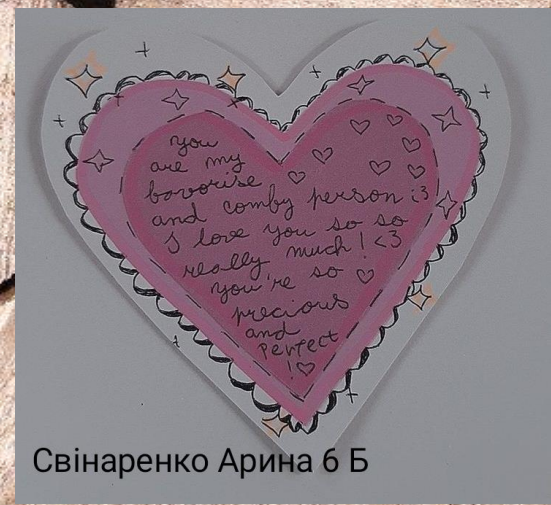 you
are my
bovorise
and comby person :3
I love you so so
really much! <3
you're so
precious
and
perfect
!
Свінаренко Арина 6 Б